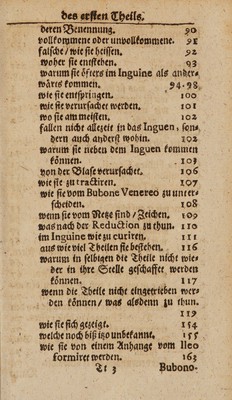 des ersten Theils.
deren Benennung. 90
vollkommene oder unvollkommene. 91
falsche / wie sie heissen. 92
woher sie entstehen. 93
warum sie öfters im Inguine als ander-
wärts kommen. 94.98
wie sie entspringen. 100
wie sie verursachet werden. 101
wo sie am meisten. 102
fallen nicht allezeit in das Inguen, son-
dern auch anderst wohin. 102
warum sie neben dem Inguen kommen
können. 103
von der Blase verursachet. 106
wie sie zu tractiren. 107
wie sie vom Bubone Venereo zu unter-
scheiden. 108
wenn sie vom Netze sind / Zeichen. 109
was nach der Reduction zu thun. 110
im Inguine wie zu curiren. 111
aus wie viel Theilen sie bestehen. 116
warum in selbigen die Theile nicht wie-
der in ihre Stelle geschaffet werden
können. 117
wenn die Theile nicht eingetrieben wer-
den können / was alsdenn zu thun.
119
wie sie sich gezeigt. 154
welche noch biß itzo unbekannt. 155
wie sie von einem Anhange vom Ileo
formiret werden. 163
Tt 3 Bubono-